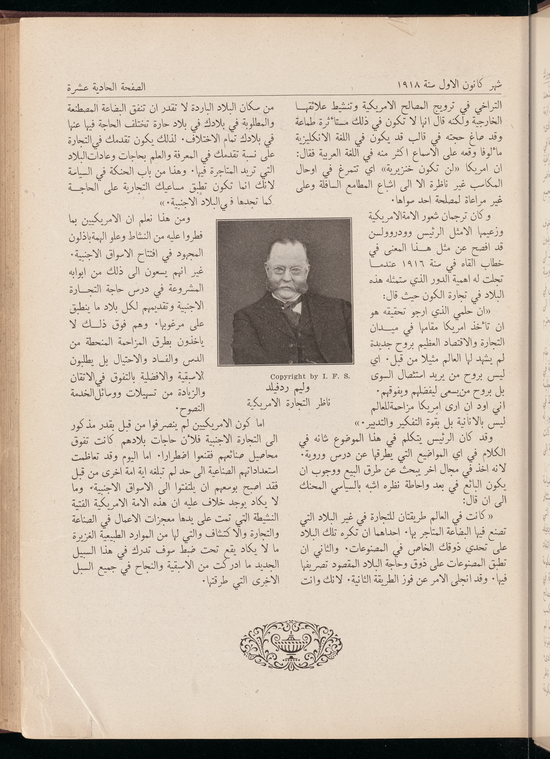 شهر كانون الاول سنة ١٩١٨
الصفحة الحادية عشرة
التراخي في ترويج المصالح الاميركية وتنشيط علائقها
الخارجية ولكنه قال انها لا تكون في ذلك مستأثرة طماعة
وقد صاغ حجته في قالب قد يكون في اللغة الانكليزية
مألوفا وقعه على الاسماع اكثر منه في اللغة العربية فقال:
ان اميركا «لن تكون خنزيرية» اي تتمرغ في اوحال
المكاسب غير ناظرة الا الى اشباع المطامع السافلة وعلى
غير مراعاة لمصلحة احد سواها.
وكان ترجمان شعور الامة الاميركية
وزعيمها الامثل الرئيس وودروولسن
قد افصح عن مثل هـــذا المعنى في
خطاب القاه في سنة ١٩١٦ عندمــا
تجلت له اهمية الدور الذي ستمثله هذه
البلاد في تجارة الكون حيث قال:
«ان حلمي الذي ارجو تحقيقه هو
ان تأخذ اميركا مقامها في ميــدان
التجارة والاقتصاد العظيم بروح جديدة
لم يشهد لها العالم مثيلا من قبل. اي
ليس بروح من يريد استئصال السوى
بل بروح من يسعى ليفضلهم ويفوقهم.
اني اود ان ارى اميركا مزاحمة للعالم
ليس بالانانية بل بقوة التفكير والتدبير.»
وقد كان الرئيس يتكلم في هذا الموضوع شانه في
الكلام في اي المواضيع التي يطرقها عن درس وروية.
لانه اخذ في مجال اخر يبحث عن طرق البيع ووجوب ان
يكون البائع في بعد واحاطة نظره اشبه بالسياسي المحنك
الى ان قال:
«كانت في العالم طريقتان للتجارة في غير البلاد التي
تصنع فيها البضاعة المتاجر بها. احداهما ان تكره تلك البلاد
على تحدي ذوقك الخاص في المصنوعات. والثاني ان
تطبق المصنوعات على ذوق وحاجة البلاد المقصود تصريفها
فيها. وقد انجلى الامر عن فوز الطريقة الثانية. لانك وانت
من سكان البلاد الباردة لا تقدر ان تنفق البضاعة المصطنعة
والمطلوبة في بلادك في بلاد حارة تختلف الحاجة فيها عنها
في بلادك تمام الاختلاف. لذلك يكون تقدمك في التجارة
على نسبة تقدمك في المعرفة والعلم بحاجات وعادات البلاد
التي تريد المتاجرة فيها. وهذا من باب الحنكة في السياسة
لانك انما تكون تطبق مساعيك التجارية على الحاجــة
كما تجدها في البلاد الاجنبية.»
ومن هذا نعلم ان الاميركيين بما
فطروا عليه من النشاط وعلو الهمة باذلون
المجهود في افتتاح الاسواق الاجنبية.
غير انهم يسعون الى ذلك من ابوابه
المشروعة في درس حاجة التجــارة
الاجنبية وتقديمهم لكل بلاد ما ينطبق
على مرغوبها. وهم فوق ذلــك لا
ياخذون بطرق المزاحمة المنحطة من
الدس والفساد والاحتيال بل يطلبون
الاسبقية والافضلية بالتفوق في الاتقان
والزيادة من تسهيلات ووسائل الخدمة
النصوح.
اما كون الاميركيين لم ينصرفوا من قبل بقدر مذكور
الى التجارة الاجنبية فلان حاجات بلادهم كانت تفوق
محاصيل صنائعهم فقنعوا اضطرارا. اما اليوم وقد تعاظمت
استعداداتهم الصناعية الى حد لم تبلغه اية امة اخرى من قبل
فقد اصبح بوسعهم ان يلتفتوا الى الاسواق الاجنبية. وما
لا يكاد يوجد خلاف عليه ان هذه الامة الاميركية الفتية
النشيطة التي تمت على يدها معجزات الاعمال في الصناعة
والتجارة والاكتشاف والتي لها من الموارد الطبيعية الغزيرة
ما لا يكاد يقع تحت ضبط سوف تدرك في هذا السبيل
الجديد ما ادركت من الاسبقية والنجاح في جميع السبل
الاخرى التي طرقتها.
Copyright by I. F. S.
وليم ردفيلد
ناظر التجارة الاميركية